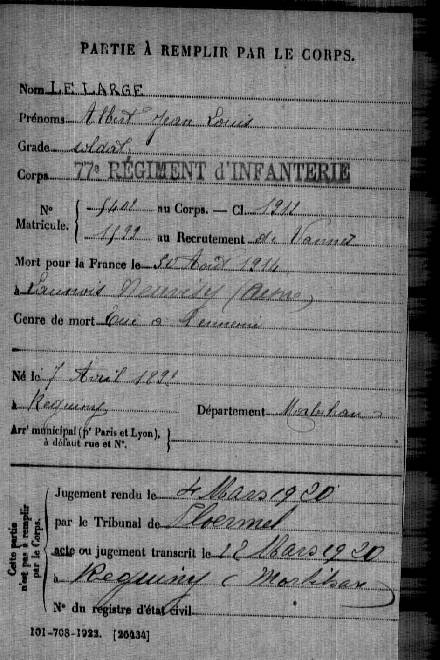 PARTIE À REMPLIR PAR LE CORPS.
Nom LE LARGE
Prénoms Albert Jean Louis
Grade soldat
Corps 77e RÉGIMENT d'INFANTERIE
N° Matricule. { 5402 au Corps. — Cl. 1912
1599 au Recrutement de Vannes
Mort pour la France le 30 Août 1914
à Launois Neuvisy
Genre de mort tué à l'ennemi
Né le 7 Avril 189
à Réguiny Département Morbihan
Arrt municipal (pr Paris et Lyon), à défaut rue et N°. }
Cette partie n'est pas à remplir par le Corps.
Jugement rendu le 4 Mars 1920
par le Tribunal de Ploermel
acte ou jugement transcrit le 12 Mars 1920
à Réguiny (Morbihan)
N° du registre d'état civil
101-708-1922. [26434]